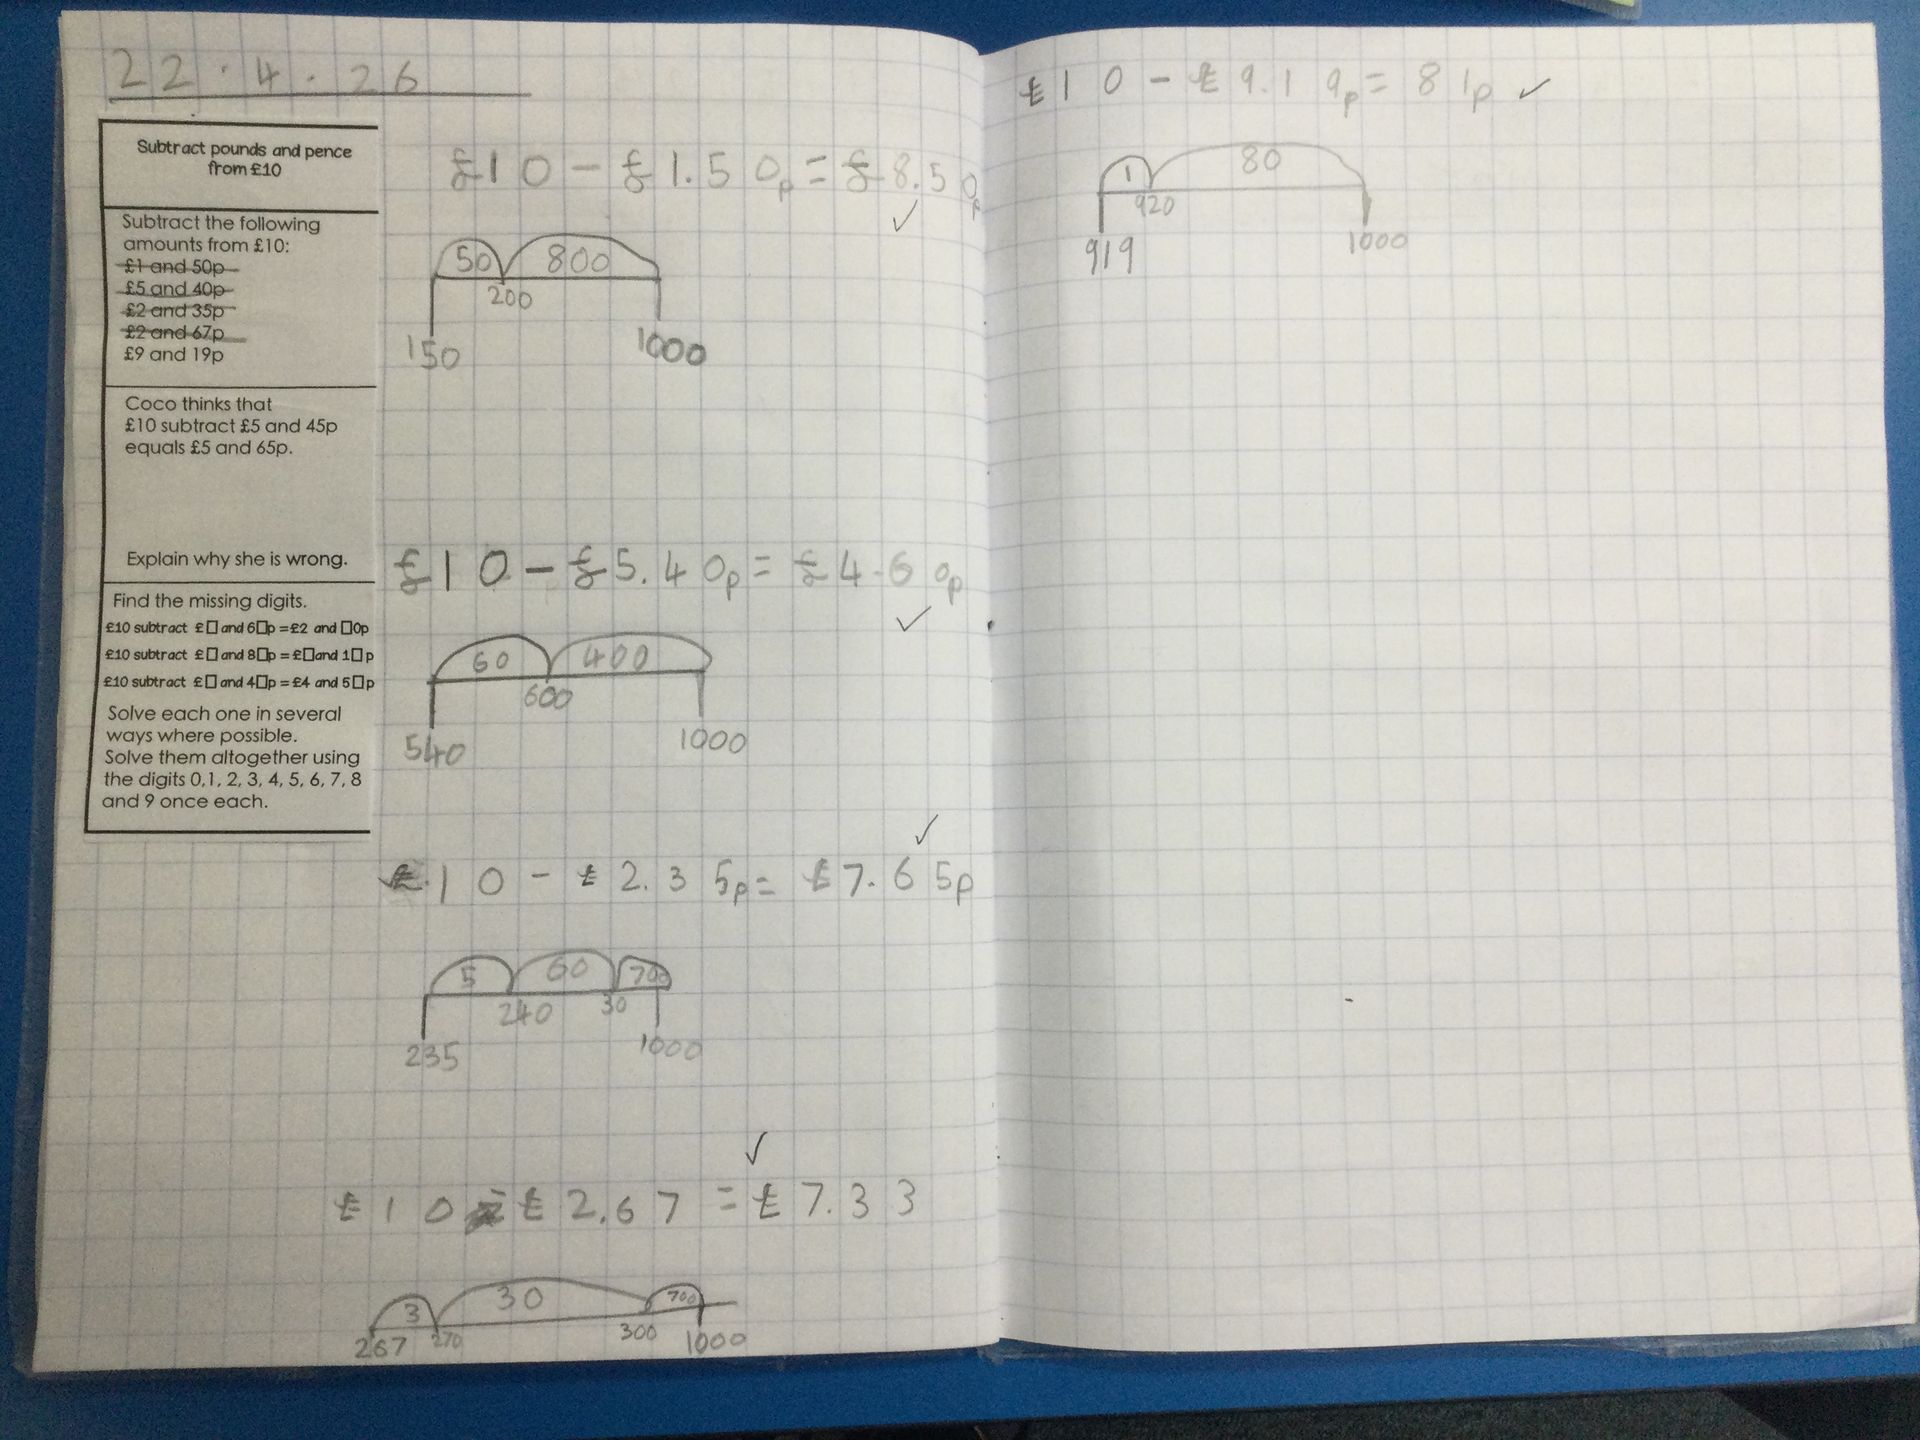 22.4.26
Subtract pounds and pence
from £10
Subtract the following
amounts from £10:
£1 and 50p
£5 and 40p
£2 and 35p
£2 and 67p
£9 and 19p
Coco thinks that
£10 subtract £5 and 45p
equals £5 and 65p.
Explain why she is wrong.
Find the missing digits.
£10 subtract £□ and 6□p = £2 and □0p
£10 subtract £□ and 8□p = £□ and 1□p
£10 subtract £□ and 4□p = £4 and 5□p
Solve each one in several
ways where possible.
Solve them altogether using
the digits 0,1, 2, 3, 4, 5, 6, 7, 8
and 9 once each.
£10 - £1.50p = £8.50p
50 800
200
150 1000
£10 - £5.40p = £4.60p
60 400
600
540 1000
£10 - £2.35p = £7.65p
5 60 700
240 30
235 1000
£10 - £2.67 = £7.33
3 30 700
267 270 300 1000
£10 - £9.19p = 81p
1 80
920
919 1000